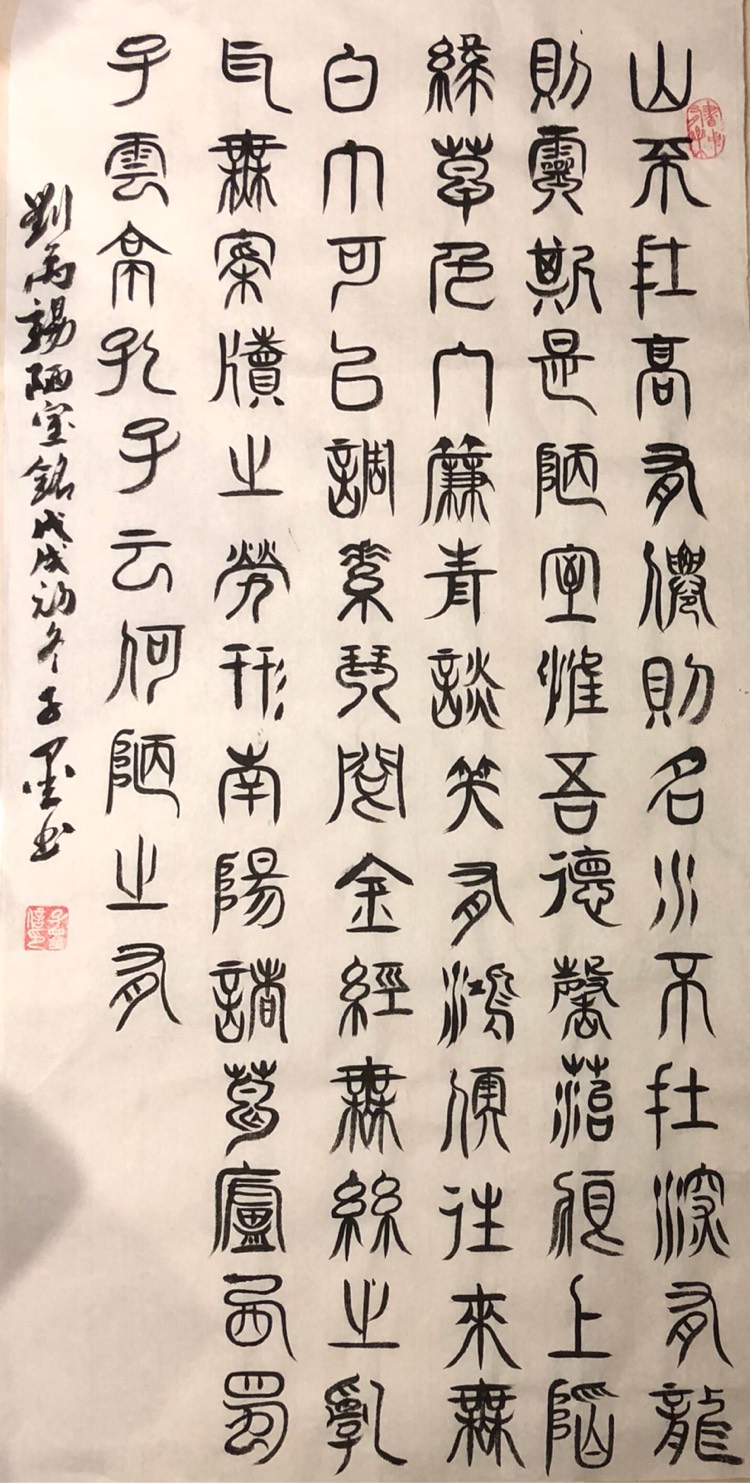 山不在高有僊則名水不在深有龍
則靈斯是陋室惟吾德馨菭痕上階
綠草色入簾青談笑有鴻儒往來無
白丁可以調素琴閱金經無絲之亂
耳無案牘之勞形南陽諸葛廬西蜀
子雲亭孔子云何陋之有
劉禹錫陋室銘戊戌初冬子墨书